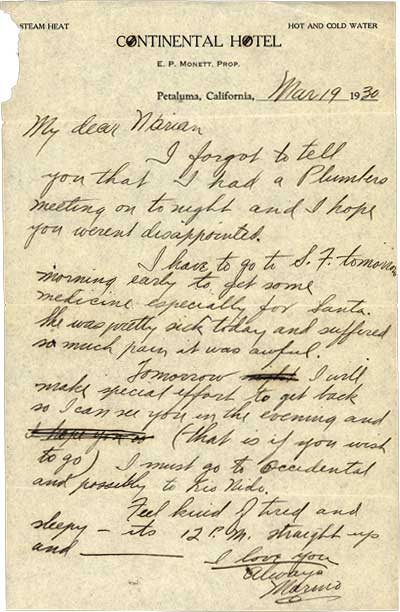 STEAM HEAT HOT AND COLD WATER
CONTINENTAL HOTEL
E. P. MONETT, PROP.
Petaluma, California, Mar 19 1930
My dear Marian
I forgot to tell
you that I had a Plumbers
meeting on to night and I hope
you werent disappointed.
I have to go to S. F. tomorrow
morning early to get some
medicine especially for Santa.
She was pretty sick today and suffered
so much pain it was awful.
Tomorrow night I will
make special effort to get back
so I can see you in the evening and
I hope you (that is if you wish
to go) I must go to Occidental
and possibly to Rio Nido.
Feel kind of tired and
sleepy – its 12 P.M. straight up
and
I love you
Always
Marino